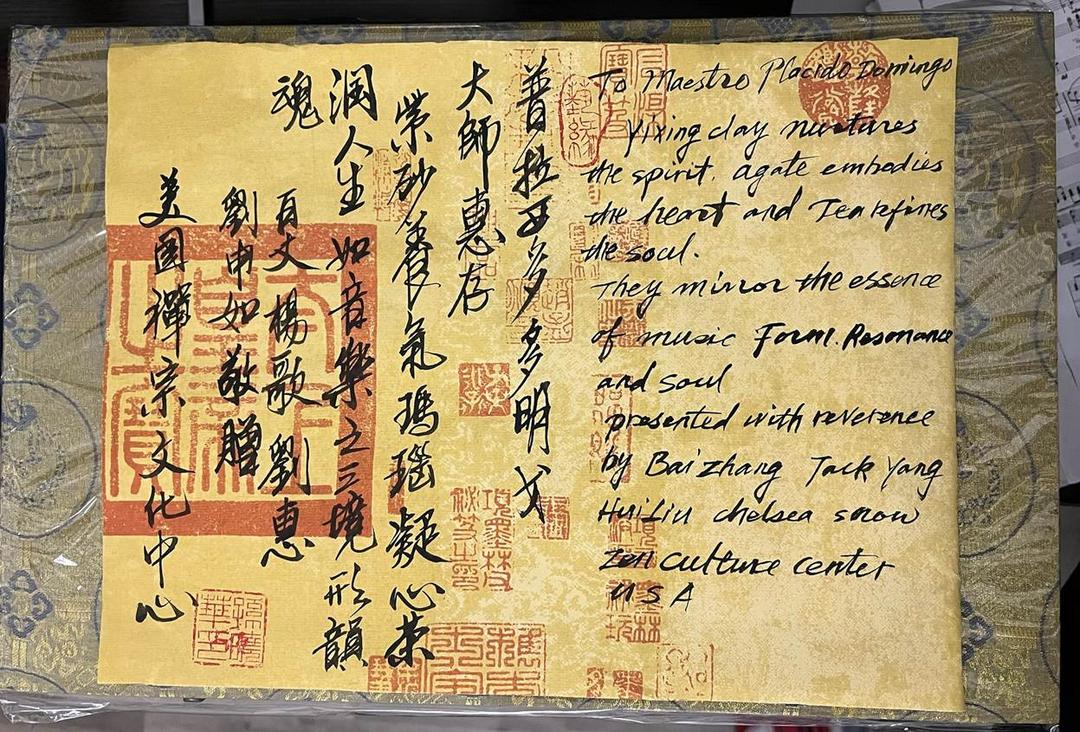 To Maestro Placido Domingo
Yixing clay nurtures
the spirit. agate embodies
the heart and Tea refines
the soul.
They mirror the essence
of music Form. Resonance
and soul
presented with reverence
by Baizhang Jack Yang
Hui Liu chelsea snow
Zen culture center
USA
普拉西多多明戈
大師惠存
紫砂養氣瑪瑙凝心茶
润人生如音樂之三境形韻
魂
百丈楊歌劉惠
劉申如敬贈
美国禪宗文化中心